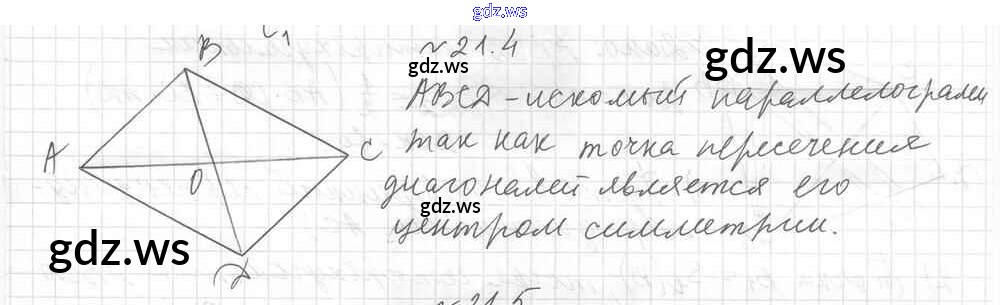 gdz.ws
B
C₁
№21.4
gdz.ws
gdz.ws
ABCD - искомый параллелограмм
A
C
так как точка пересечения
O
диагоналей является его
gdz.ws
gdz.ws
центром симметрии.
D
№21.5